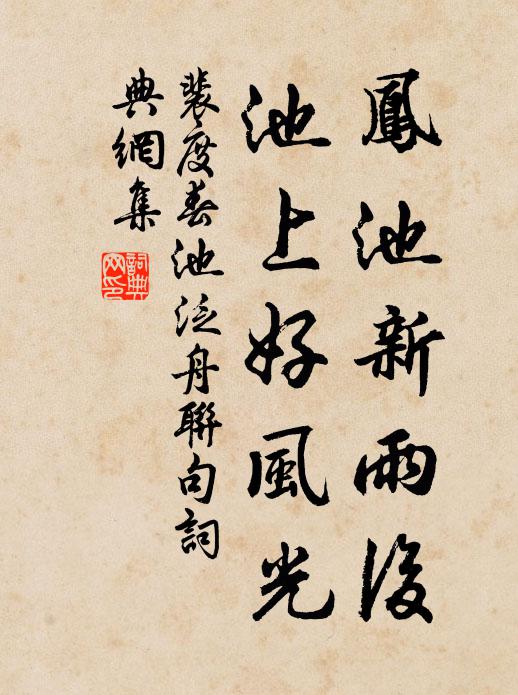 鳳池新雨後
池上好風光
裴度春池泛舟聯句詞
典網集
詞典
网印